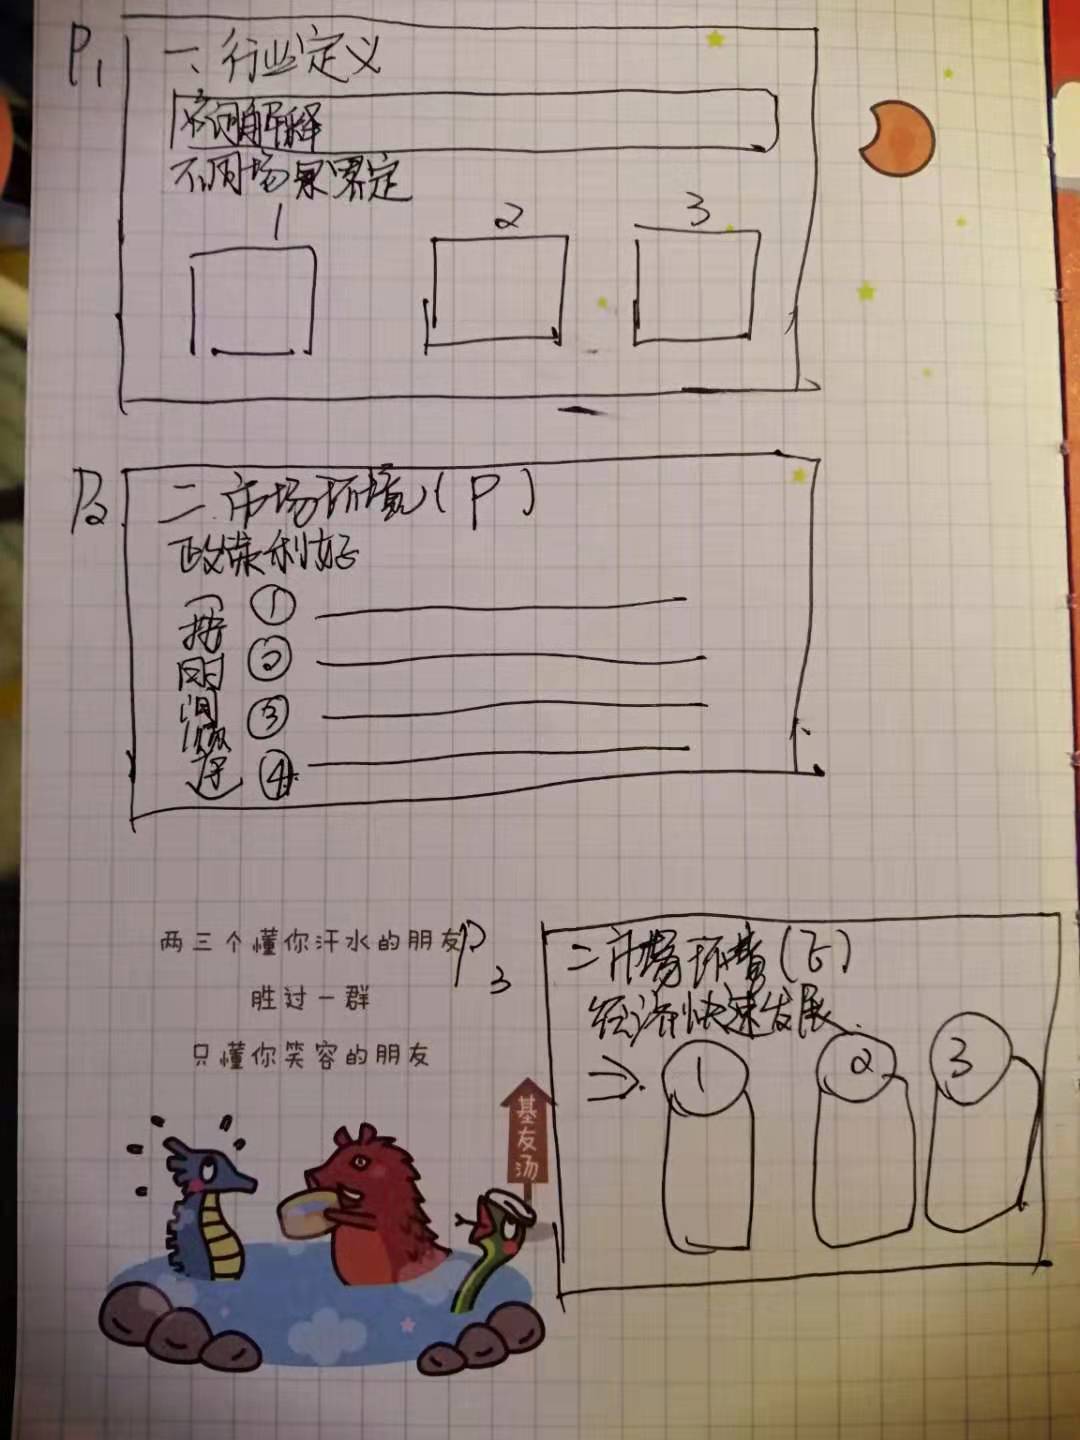 P1
一、行业定义
名词解释
不同场景界定
1 2 3
P2
二.市场环境(P)
政策利好
(按时间顺序)
①
②
③
④
两三个懂你汗水的朋友
胜过一群
只懂你笑容的朋友
基友汤
P3
二市场环境(E)
经济快速发展
⇒.
1 2 3